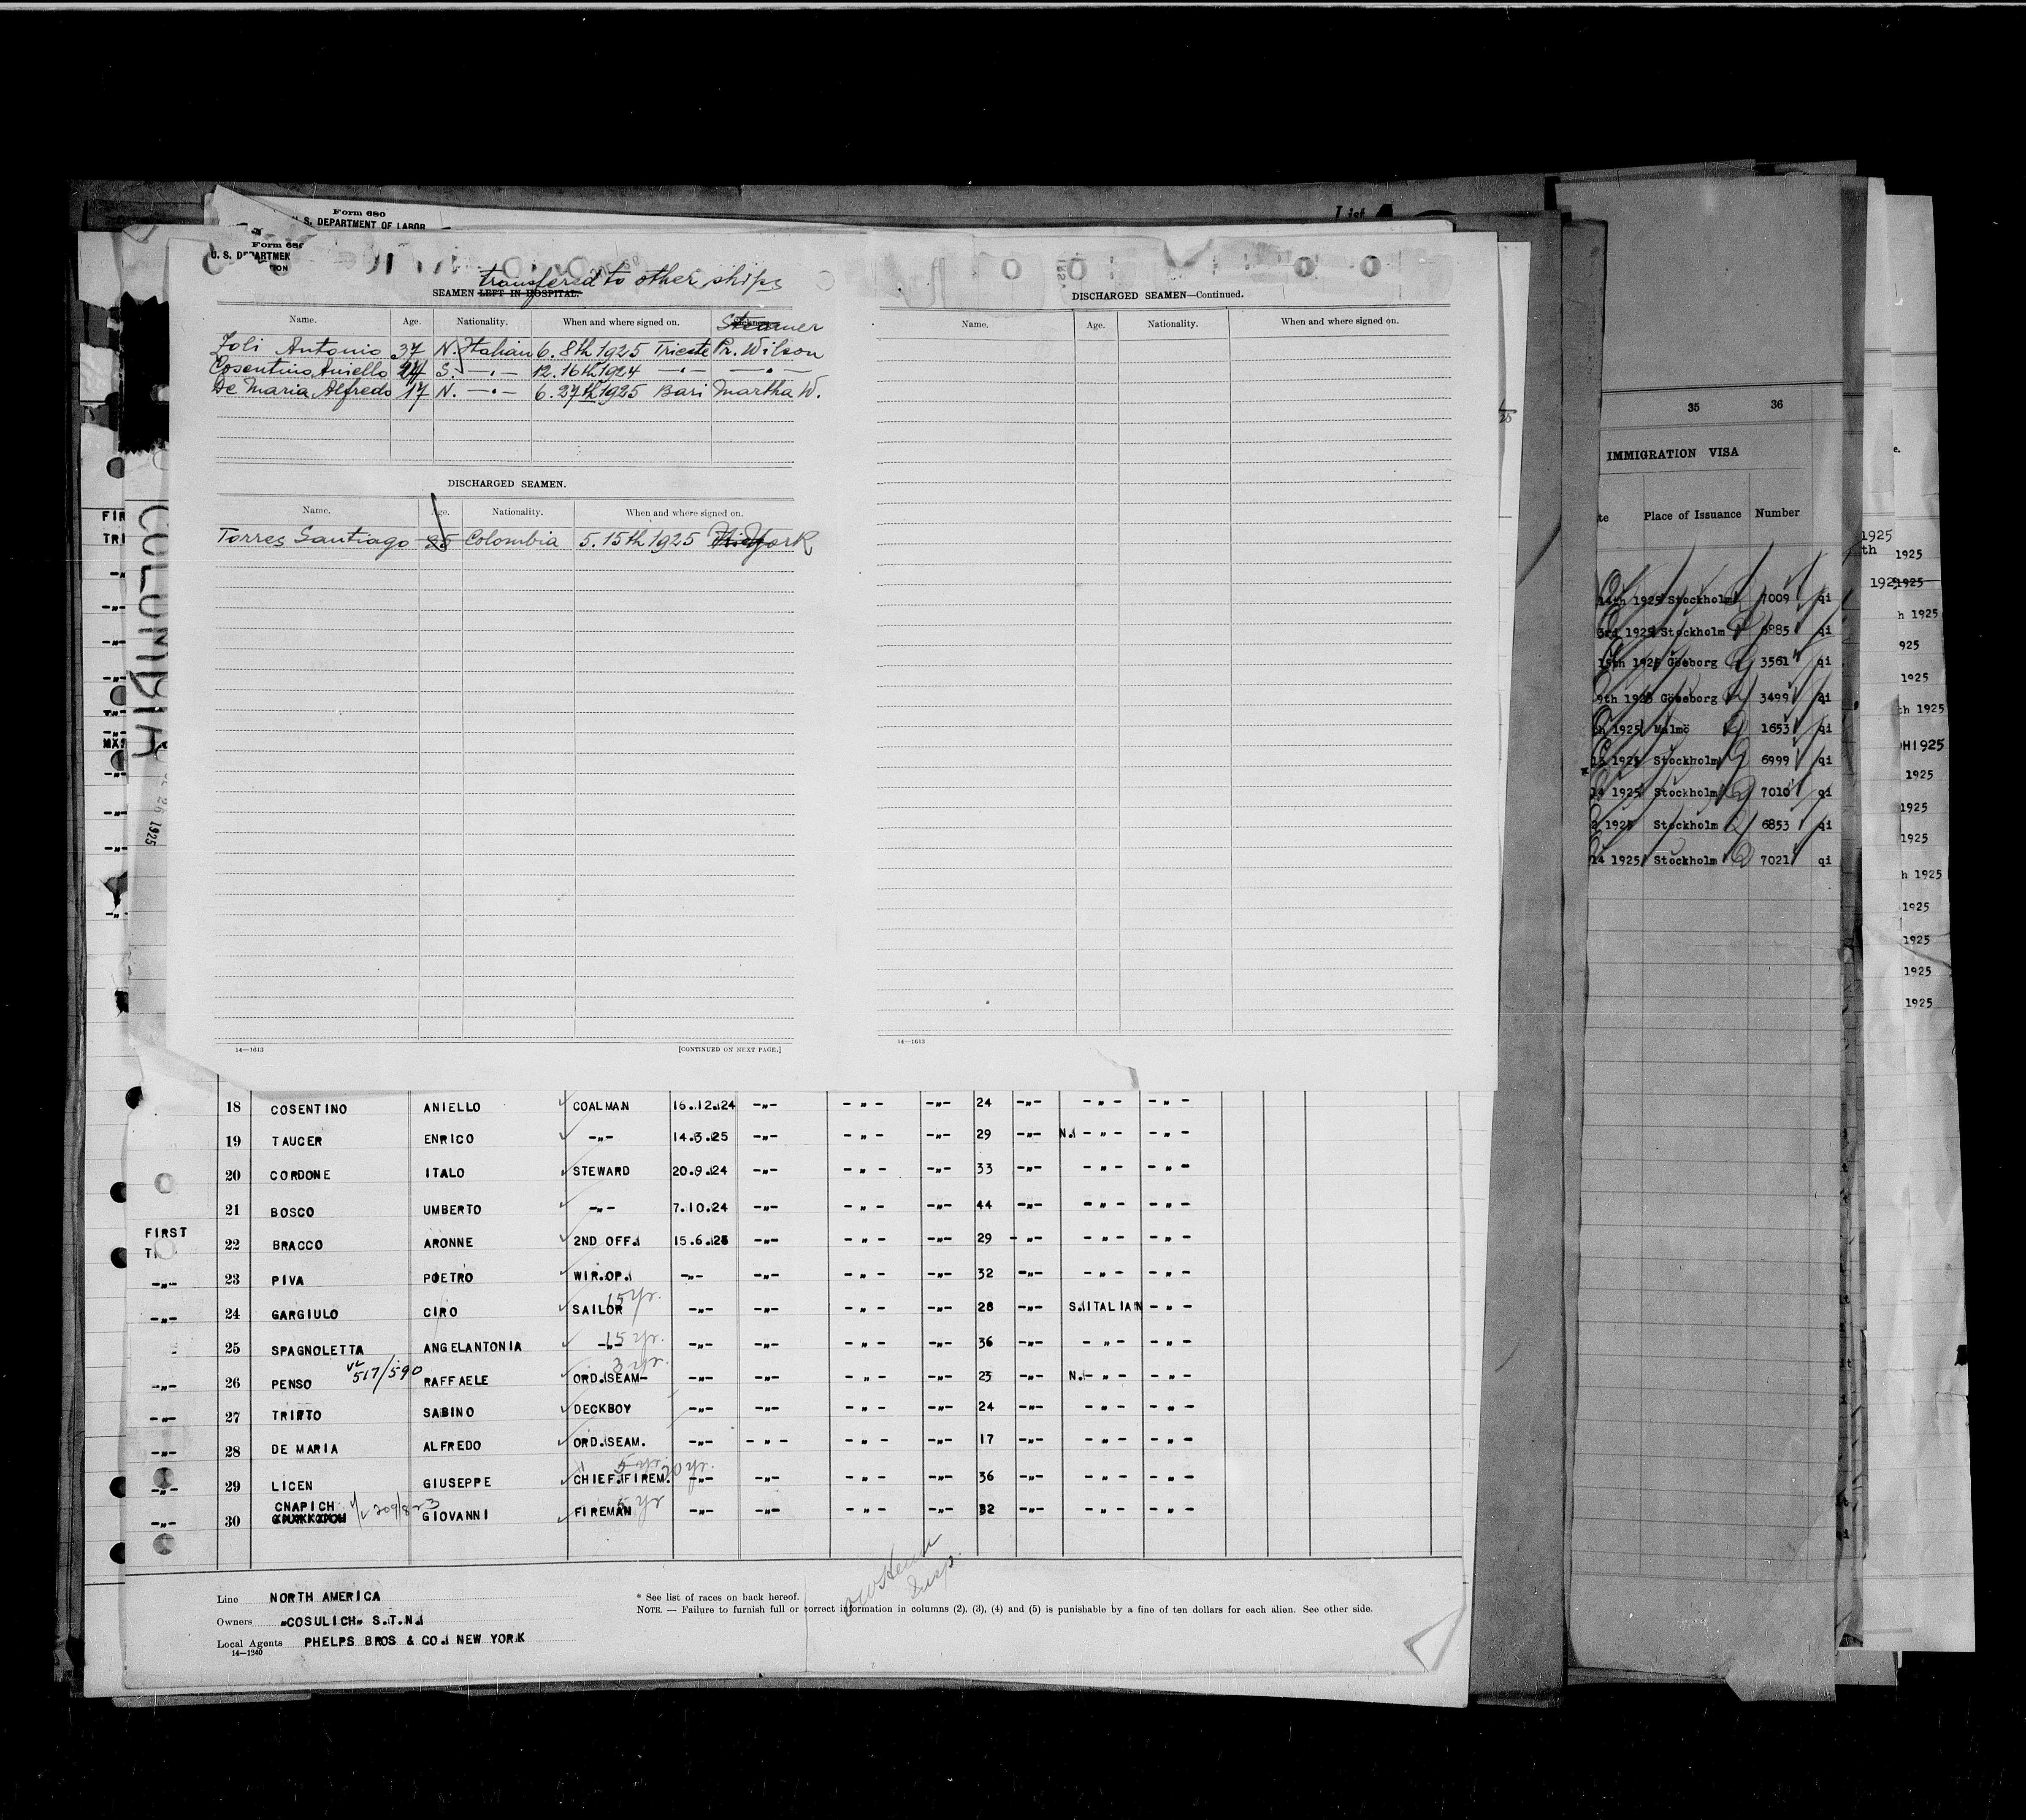 Form 680
U. S. DEPARTMENT OF LABOR
Form 680
transfered to other ships
SEAMEN LEFT IN HOSPITAL.
Name. Age. Nationality. When and where signed on. Steamer
Antonio 37 N. Italian 6. 8th 1925 Trieste Pr. Wilson
Cosentino Aniello 24 S. —"— 12. 16th 1924 —"— —"—
De Maria Alfredo 17 N. —"— 6. 27th 1925 Bari Martha W.
DISCHARGED SEAMEN.
Name. Age. Nationality. When and where signed on.
Torres Santiago 25 Colombia 5. 15th 1925 York
14—1613 [CONTINUED ON NEXT PAGE.]
DISCHARGED SEAMEN—Continued.
Name. Age. Nationality. When and where signed on.
14—1613
COLUMBIA
26 1925
18 COSENTINO ANIELLO COALMAN 16.12.24 -"- - " - -"- 24 -"- - " - - " -
19 TAUCER ENRICO -"- 14.3.25 -"- - " - -"- 29 -"- N. - " - - " -
20 CORDONE ITALO STEWARD 20.9.24 -"- - " - -"- 33 -"- - " - - " -
21 BOSCO UMBERTO -"- 7.10.24 -"- - " - -"- 44 -"- - " - - " -
FIRST
22 BRACCO ARONNE 2ND OFF. 15.6.25 -"- - " - -"- 29 -"- - " - - " -
23 PIVA POETRO WIR.OP. -"- -"- - " - -"- 32 -"- - " - - " -
15 yr.
-"- 24 GARGIULO CIRO SAILOR -"- -"- - " - -"- 28 -"- S.ITALIAN - " -
25 SPAGNOLETTA ANGELANTONIA -"- 15 yr. -"- -"- - " - -"- 36 -"- - " - - " -
517/590 3 yr.
-"- 26 PENSO RAFFAELE ORD.SEAM- -"- -"- - " - -"- 23 -"- N.- " - - " -
-"- 27 TRIFTO SABINO DECKBOY -"- -"- - " - -"- 24 -"- - " - - " -
-"- 28 DE MARIA ALFREDO ORD.SEAM. -"- - " - - " - -"- 17 -"- - " - - " -
5 yr. 20 yr.
-"- 29 LICEN GIUSEPPE CHIEF.FIREM. -"- -"- - " - -"- 36 -"- - " - - " -
CNAPICH 209/823 5 yr
-"- 30 GIOVANNI FIREMAN -"- -"- - " - -"- 32 -"- - " - - " -
Line NORTH AMERICA
Owners "COSULICH" S.T.N.
Local Agents PHELPS BROS & CO. NEW YORK
14—1240
* See list of races on back hereof.
NOTE. — Failure to furnish full or correct information in columns (2), (3), (4) and (5) is punishable by a fine of ten dollars for each alien. See other side.
Insp.
35 36
IMMIGRATION VISA
Place of Issuance Number
14th 1925 Stockholm 7009 qi
3rd 1925 Stockholm 6885 qi
15th 1925 Göeborg 3561 qi
9th 1925 Göeborg 3499 qi
1925 Malmö 1653 qi
15 1925 Stockholm 6999 qi
14 1925 Stockholm 7010 qi
2 1925 Stockholm 6853 qi
14 1925 Stockholm 7021 qi
1925
th 1925
1925
h 1925
925
1925
th 1925
H1925
1925
1925
1925
h 1925
1925
1925
1925
1925